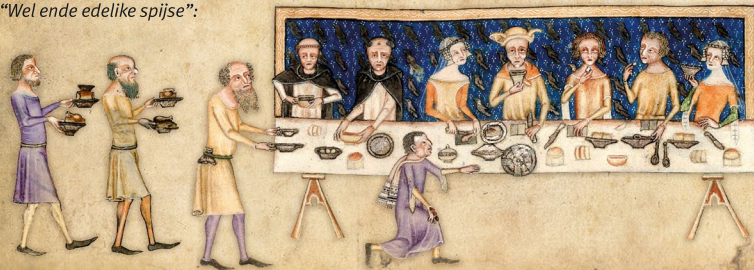 “Wel ende edelike spijse”: